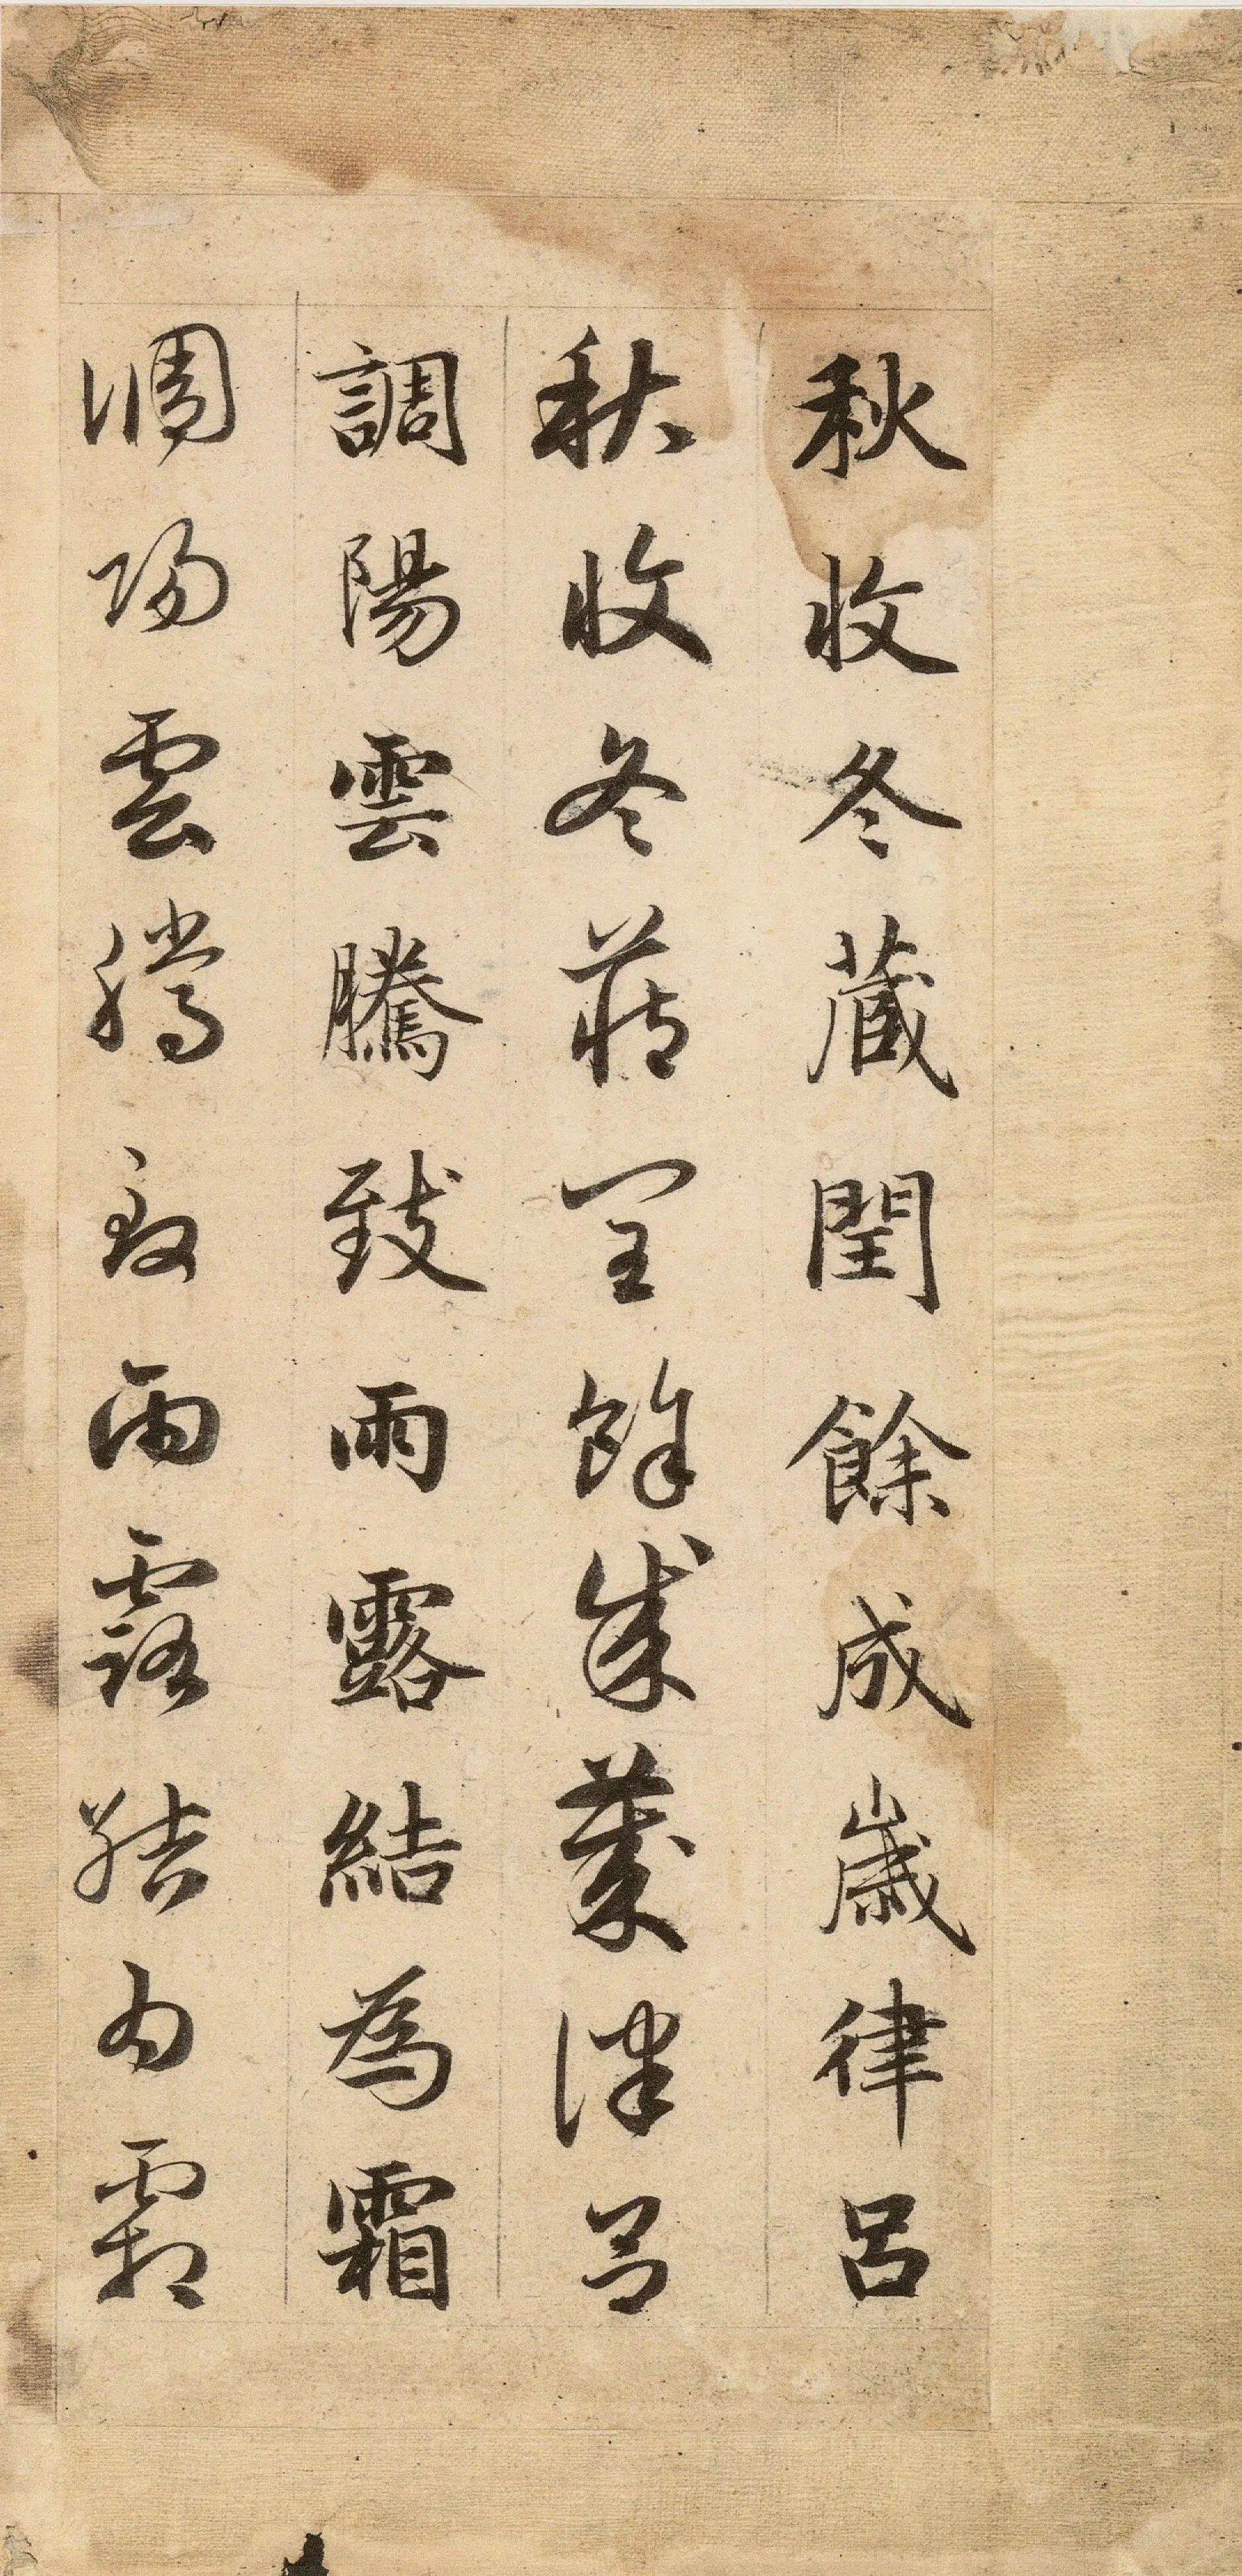 秋收冬蔵閏餘成歳律呂
秋收冬蔵閏餘成歳律呂
調陽雲騰致雨露結為霜
調陽雲騰致雨露結為霜